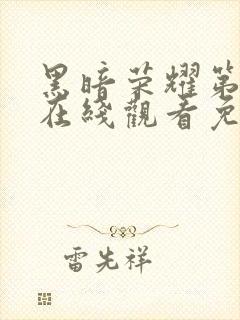 黑暗荣耀第
在线觀看免
雷先祥